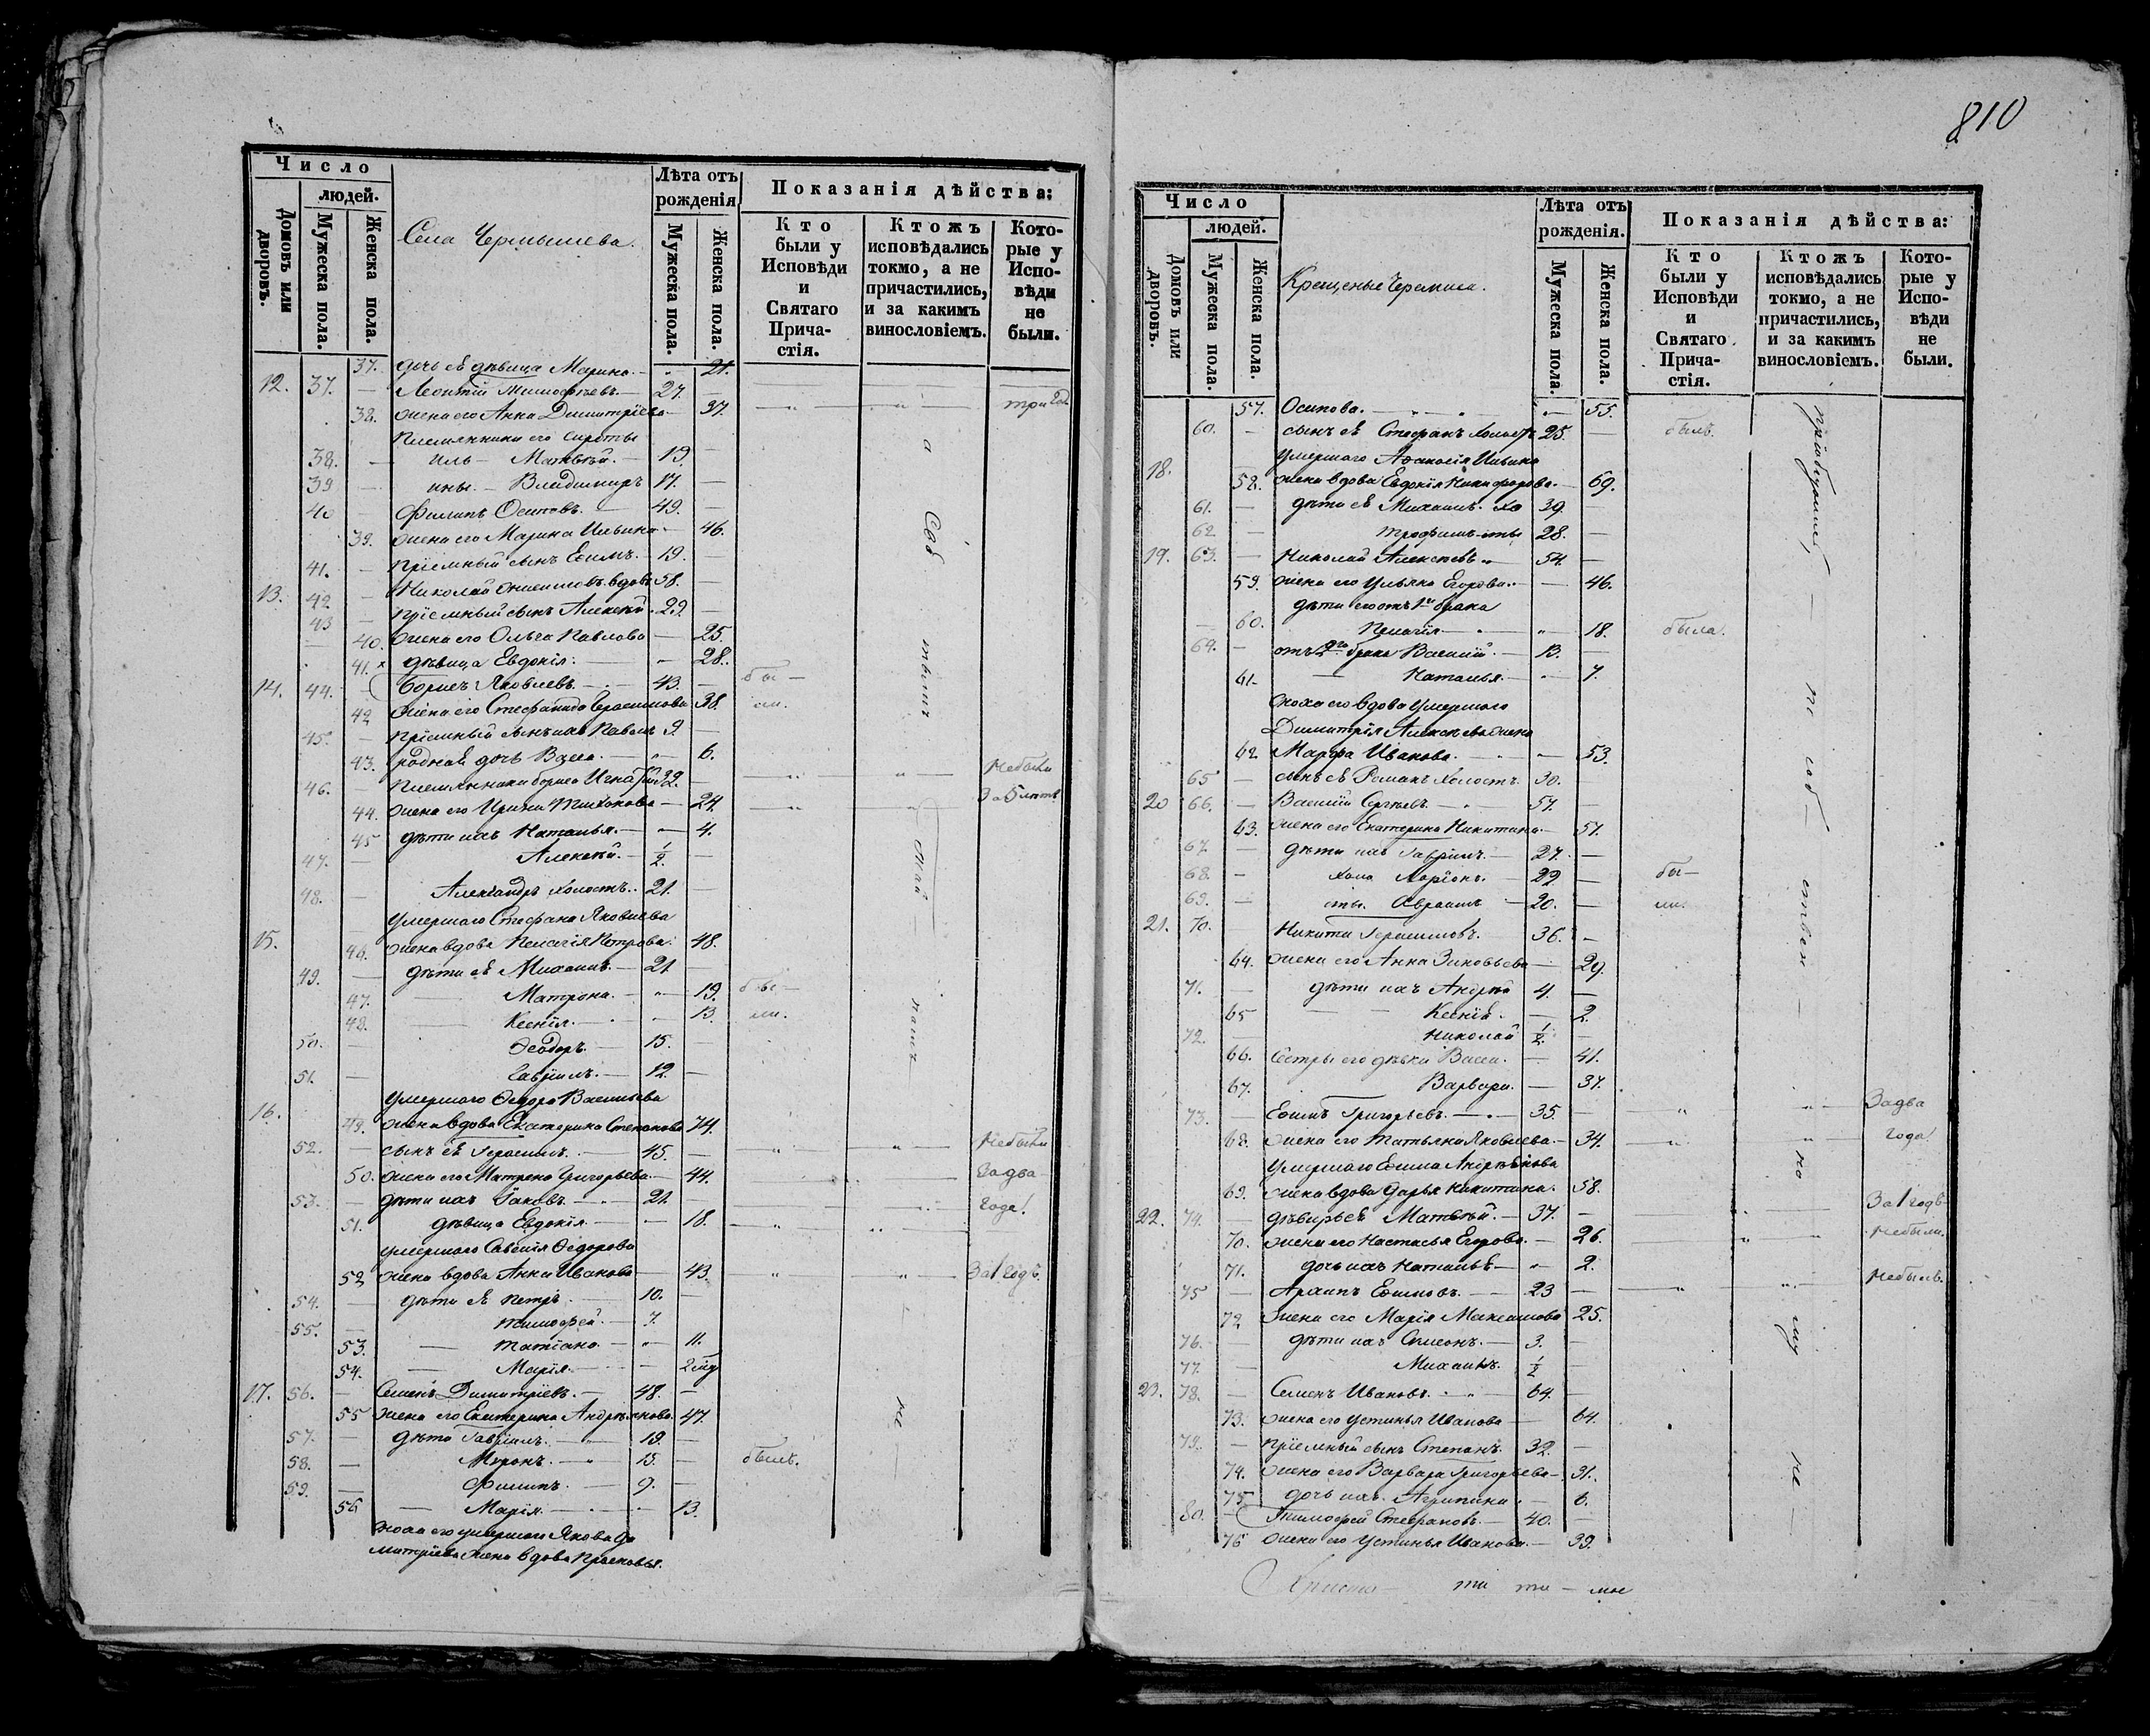 Число
людей.
Домовъ или дворовъ.
Мужеска пола.
Женска пола.
Села Чермышева.
Лѣта отъ рожденія
Мужеска пола.
Женска пола.
Показанія дѣйства:
Кто были у Исповѣди и Святаго Причастія.
Ктожъ исповѣдались токмо, а не причастились, и за какимъ винословіемъ.
Которые у Исповѣди не были.
37. дочь еѣ дѣвица Марина. — „ 21.
12. 37. Леонтій Тимофѣевъ. — 27. —
38. жена его Анна Димитріева — 37. — „ — „ три год.
племянники его сироты
38. — Матвѣй. — 19. —
39 — Владимиръ 17. —
40 — Филипъ Осиповъ. — 49. —
39. жена его Марина Ильина. 46.
41. — пріемный сынъ Ефимъ. — 19. —
13. 42 — Николай вдовъ 58. —
43 — пріемный сынъ Алексѣй. 29. —
40. жена его Ольга Павлова — 25.
41. х дѣвица Евдокія. — 28.
14. 44. — Борисъ Яковлевъ. — 43. — бы —
42 жена его Стефанида Герасимова 38. ли.
45. — пріемный сынъ ихъ Павелъ 9. —
43. родная дочь Васса. — „ 6.
46. — племянникъ Бориса Игнатій 32. — „ „ — не были
44. жена его Ирина Тихонова — 24. — „ За 5 лѣтъ
45 дѣти ихъ Наталья. — „ — 4.
47. — Алексѣй. — ½. —
48. — Александръ холостъ. 21. —
умершаго Стефана Яковлева
15. 46. жена вдова Пелагія Петрова. 48.
49. — дѣти еѣ Михаилъ. — 21. —
47. — Матрона. — „ — 19. бы —
48. — Ксенія. — „ — 13. ли.
50. — Ѳеодоръ. — 15. —
51. — Гавріилъ. — 12. —
умершаго Ѳедора Васильева
16. 49. жена вдова Екатерина Степанова 74.
52. — сынъ еѣ Герасимъ. — 45. — „ „ — не были
50. жена его Матрена Григорьева — 44. За два
53. — дѣти ихъ Іаковъ. — 21. — года!
51. дѣвица Евдокія — 18. — „ „
умершаго Савелія Ѳедорова
52 жена вдова Анна Иванова — 43. — „ „ — За 1 годъ.
54. — дѣти еѣ Петръ. — 10. —
55. — Тимофей. — 7.
53. — Татіана. — „ 11.
54. — Марія. — 2
17. 56. — Семенъ Димитріевъ. — 48. —
55 жена его Екатерина Андреянова 47.
57. — дѣти Гавріилъ. — „ 19. —
58. — Миронъ. — „ 15. — былъ.
59. — Филипъ. — 9. —
56 — Марія. — „ 13.
умершаго Якова Ди
митріева жена вдова Прасковья.
810
Число
людей.
Домовъ или дворовъ.
Мужеска пола.
Женска пола.
Крещеные Черемиса.
Лѣта отъ рожденія.
Мужеска пола.
Женска пола.
Показанія дѣйства:
Кто были у Исповѣди и Святаго Причастія.
Ктожъ исповѣдались токмо, а не причастились, и за какимъ винословіемъ.
Которые у Исповѣди не были.
57. Осипова. — „ — 55.
60. — сынъ еѣ Стефанъ холостъ 25. — былъ.
умершаго Аѳанасія Ильина
18. 58. жена вдова Евдокія Никифорова. — 69.
61. — дѣти еѣ Михаилъ хо 39. —
62 — Трофимъ — сты 28. —
19. 63. — Николай Алексѣевъ „ 54. —
59. жена его Ульяна Егорова. — 46.
дѣти его отъ 1го брака
60. Пелагія — „ — 18. была.
64. — отъ 2го брака Василій. — 13. —
61. — Наталья. — „ 7.
сноха его вдова умершаго
Димитрія Алексѣева жена
62 Марфа Иванова. — „ — 53.
65 — сынъ еѣ Романъ холостъ. 30. —
20 66. — Василій Сергѣевъ. — 57. —
63. жена его Екатерина Никитина — 57.
67 — дѣти ихъ Гавріилъ. — 27. —
68. — холо Ларіонъ. — 22 — бы —
69. — сты. Авраамъ — 20. — ли.
21. 70. — Никита Герасимовъ. — 36. —
64. жена его Анна Зиновьева — 29.
71. — дѣти ихъ Андрей 4. —
65 — Ксенія. — 2.
72. — Николай ½ —
66. сестры его дѣвки Васса. — 41.
67. Варвара. — 37.
73. — Ефимъ Григорьевъ. — 35. — „ „ — За два
68. жена его Татьяна Яковлева. — 34. — „ „ года!
умершаго Ефима Андреянова
69. жена вдова Дарья Никитина. 58.
22. 74. — Матвѣй. — 37. — „ За 1 годъ
70. жена его Настасья Егорова. — 26. „ не были.
71. дочь ихъ Наталья — „ 2.
75 — Архипъ Ефимовъ. — 23 — „ „ — не былъ.
72 жена его Марія Максимова 25.
76. — дѣти ихъ Симеонъ. — 3. —
77. — Михаилъ. ½ —
23. 78. — Семенъ Ивановъ. — „ 64. —
73. жена его Устинья Иванова — 64.
79. — пріемный сынъ Степанъ. 32. —
74. жена его Варвара Григорьева — 31.
75 дочь ихъ Агрипина. — 6.
80. — Тимофей Стефановъ. — 40. —
76 жена его Устинья Иванова. — 39.